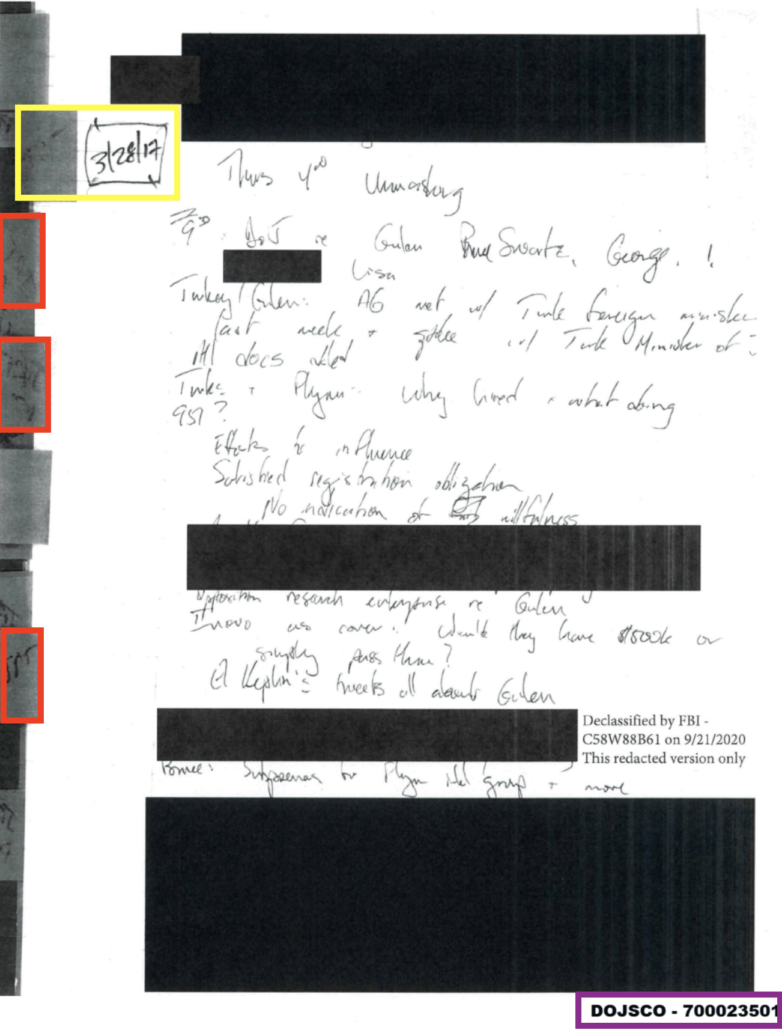 3/28/17
Thurs 4:00 Unmasking
9:30 DoJ re Gulen Bruce Swartz, George,
Lisa
Turkey / Gulen: AG met w/ Turk foreign minister
last week + w/ Turk Minister of
docs
Turks + Flynn: why hired + what doing
951?
Efforts to influence
Satisfied registration obligation
No indication of willfulness
Opposition research enterprise re Gulen
Inovo as cover. Would they have $500k or
simply pass thru?
tweets all about Gulen
Declassified by FBI -
C58W88B61 on 9/21/2020
This redacted version only
Subpoenas to Flynn Intel group + more
DOJSCO - 700023501